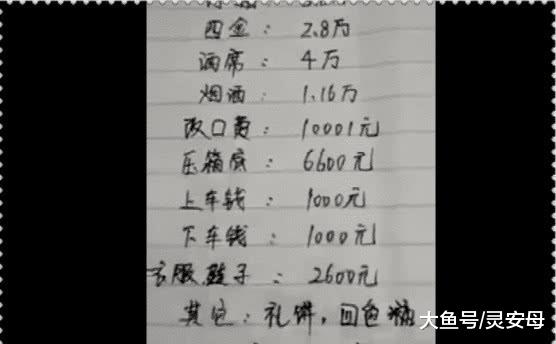 四金：2.8万
酒席：4万
烟酒：1.16万
改口费：10001元
压箱底：6600元
上车钱：1000元
下车钱：1000元
衣服鞋子：2600元
其它：礼饼，回色
大鱼号/灵安母